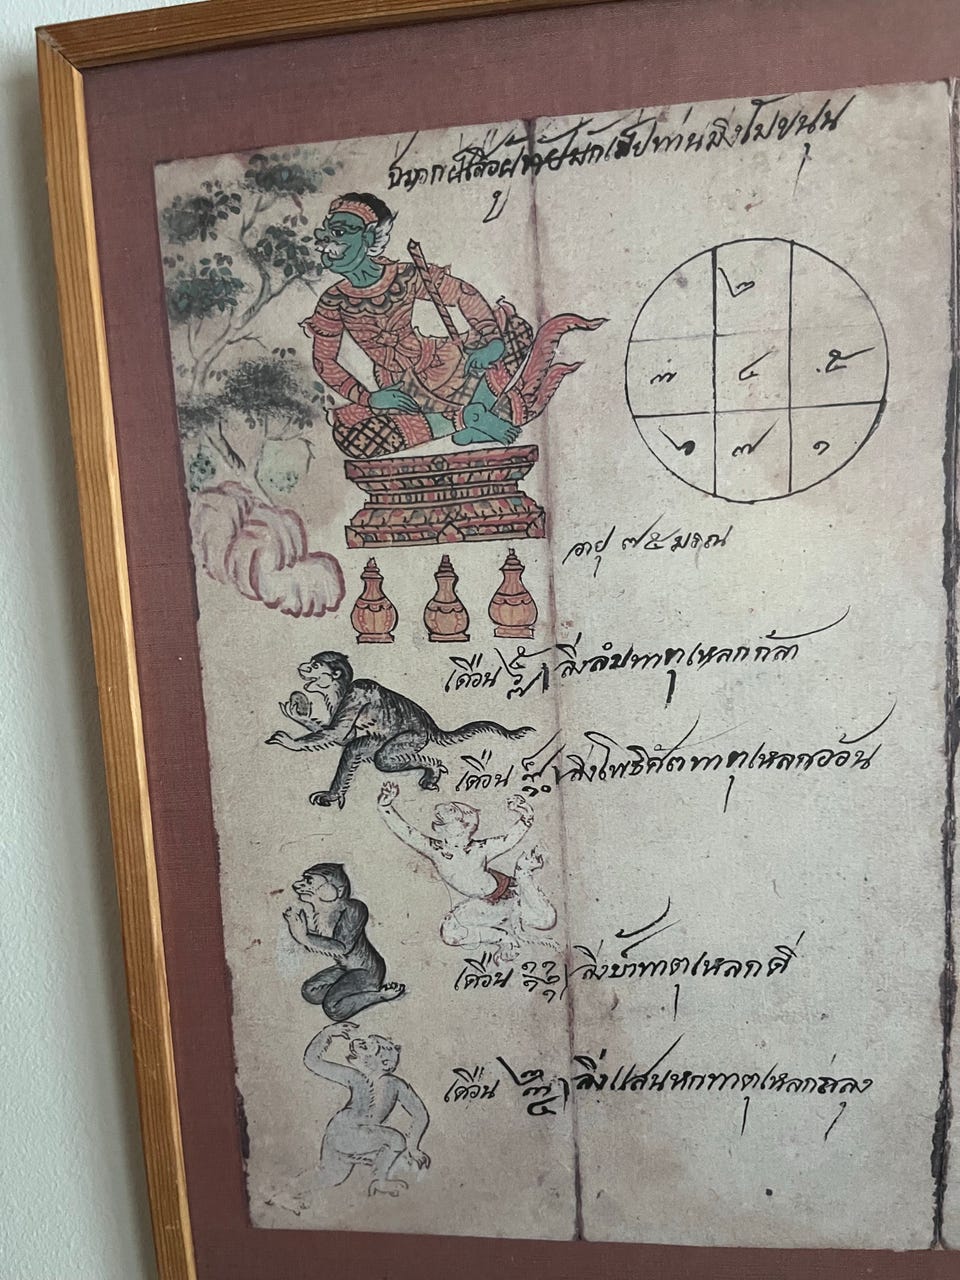 ปีวอก ผีเสื้อผู้ชาย มักเสียท่าน มิ่งไม้ขนุน
๒
๓ ๔ ๕
๖ ๗ ๑
อายุ ๗๕ มรณ
เดือน ๕ ๖ ๗ ลิงลํบทาตุเหลกกล้า
เดือน ๘ ๙ ๑๐ ลิงโพธิสัตทาตุเหลกออ้น
เดือน ๑๑ ๑๒ ๑ ลิงบ้าทาตุเหลกดี
เดือน ๒ ๓ ๔ ลิงแสนหกทาตุเหลกถลุง